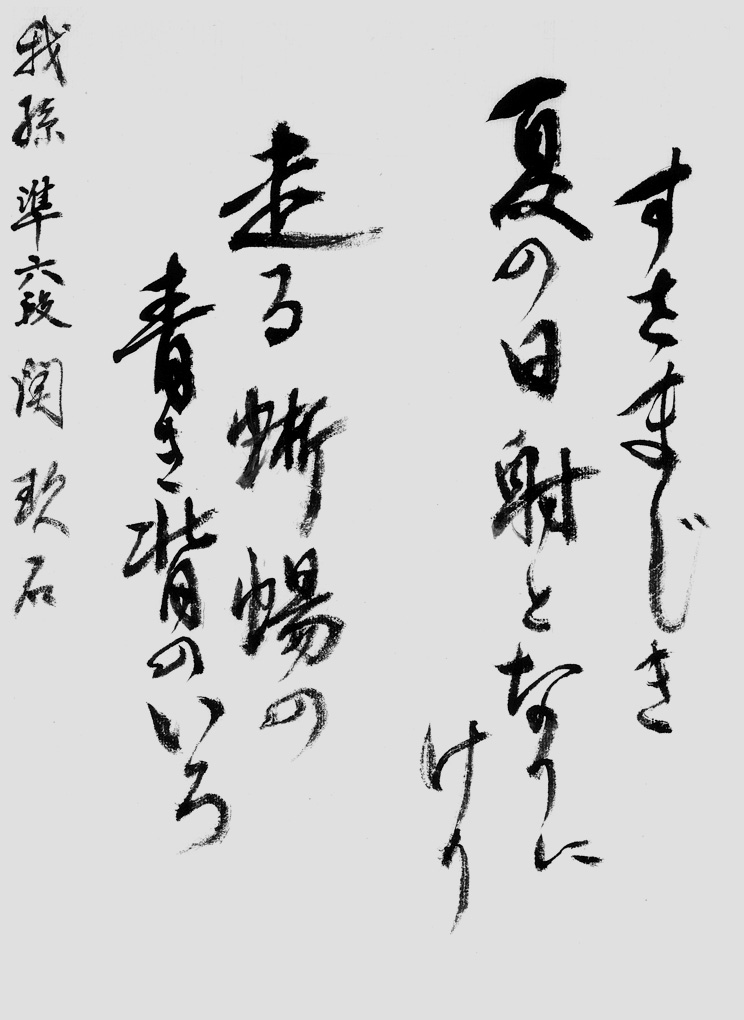 すさまじき
夏の日射となりに
けり
走る蜥蜴の
青き背のいろ
我孫 準六段 関 玖石